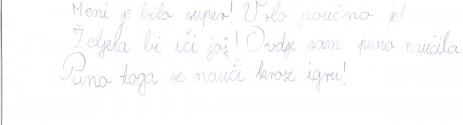 Meni je bilo super! Vrlo poučno je!
Željela bi ići još! Ovdje sam puno naučila
Puno toga se nauči kroz igru!